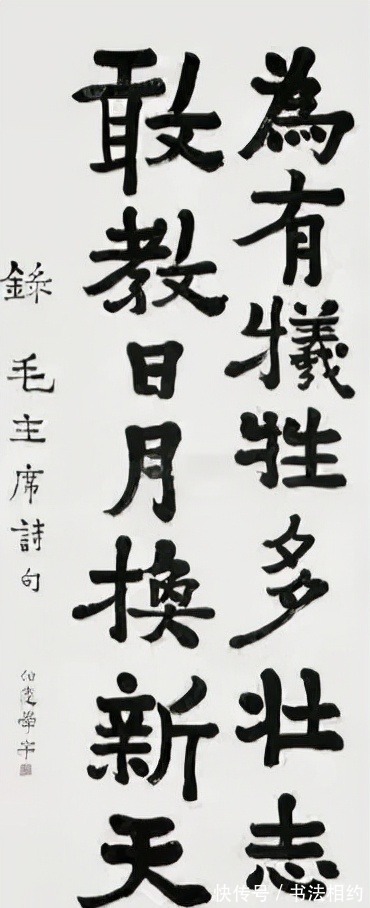 為有犧牲多壯志
敢教日月換新天
錄 毛主席詩句
學字
快传号／书法相约